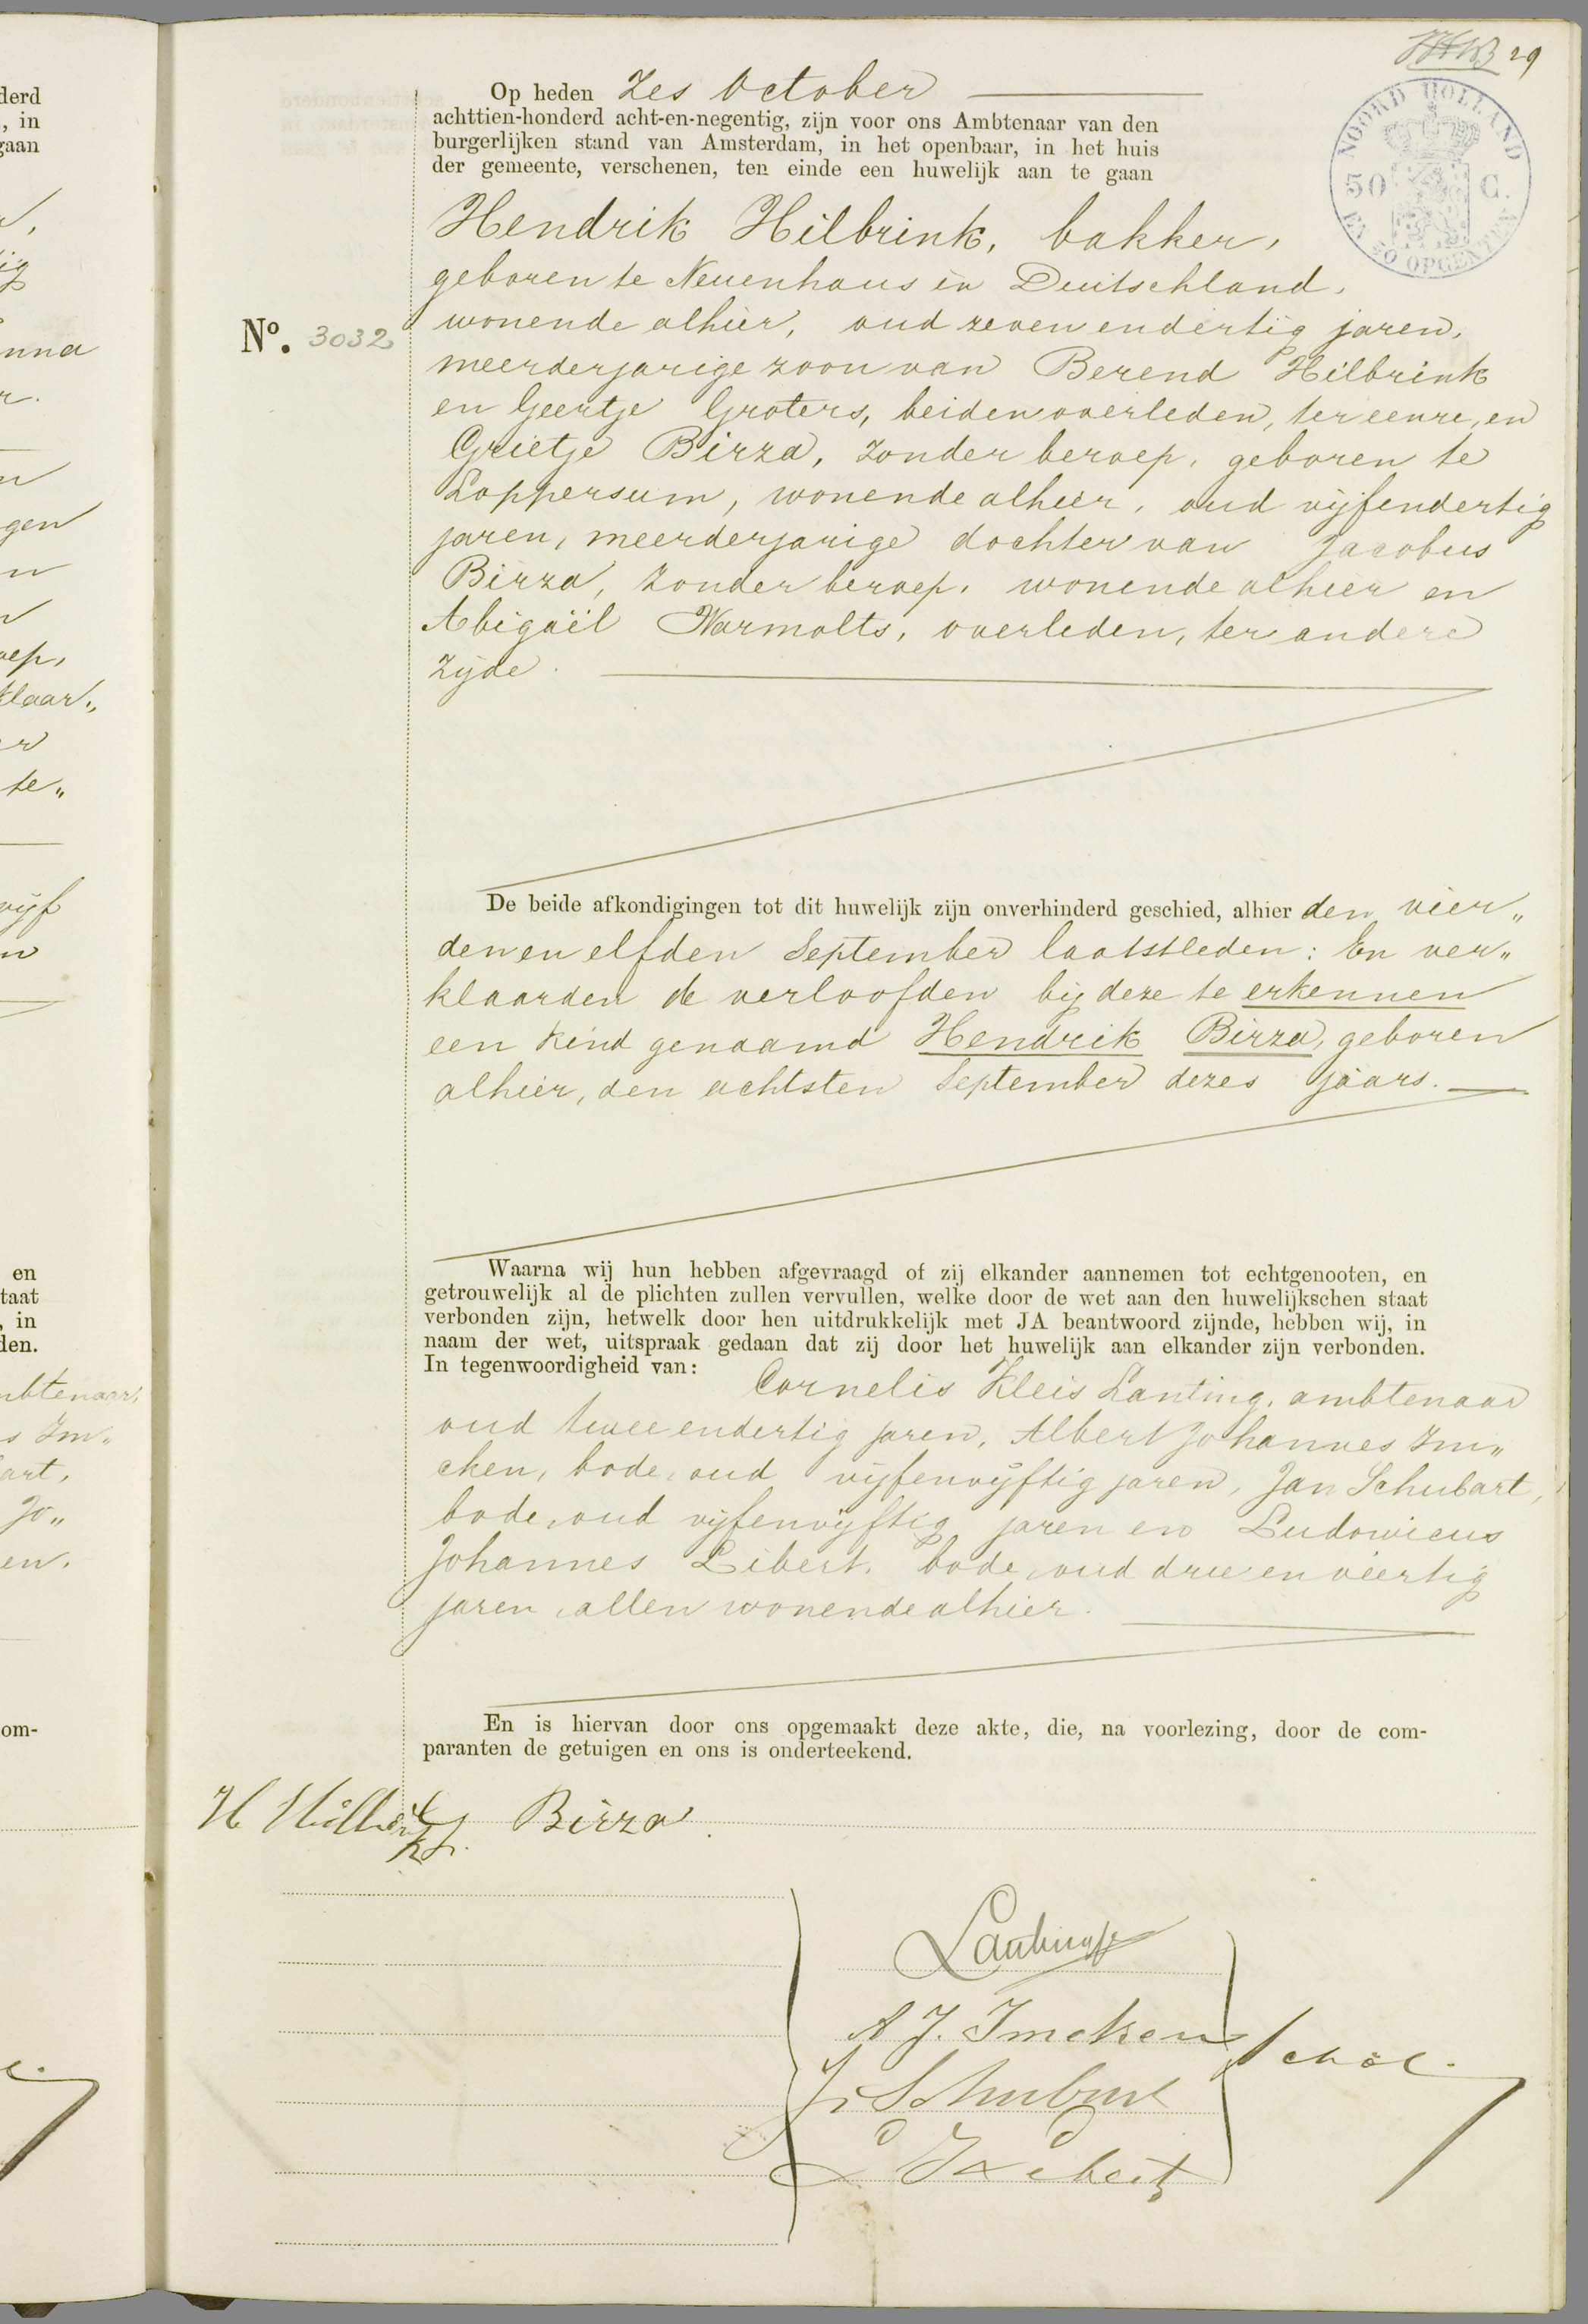 29
NOORD HOLLAND
50 C.
EN 50 OPCENTEN
Op heden Zes October
achttien-honderd acht-en-negentig, zijn voor ons Ambtenaar van den
burgerlijken stand van Amsterdam, in het openbaar, in het huis
der gemeente, verschenen, ten einde een huwelijk aan te gaan
Hendrik Hilbrink, bakker,
geboren te Neuenhaus in Duitschland,
No. 3032
wonende alhier, oud zeven en dertig jaren,
meerderjarige zoon van Berend Hilbrink
en Geertje Groters, beiden overleden, ter eenre, en
Grietje Birza, zonder beroep, geboren te
Loppersum, wonende alhier, oud vijfendertig
jaren, meerderjarige dochter van Jacobus
Birza, zonder beroep, wonende alhier en
Abigaël Warmolts, overleden, ter andere
zijde.
De beide afkondigingen tot dit huwelijk zijn onverhinderd geschied, alhier den vier„
den en elfden September laatstleden: En ver„
klaarden de verloofden bij deze te erkennen
een kind genaamd Hendrik Birza, geboren
alhier, den achtsten September dezes jaars.
Waarna wij hun hebben afgevraagd of zij elkander aannemen tot echtgenooten, en
getrouwelijk al de plichten zullen vervullen, welke door de wet aan den huwelijkschen staat
verbonden zijn, hetwelk door hen uitdrukkelijk met JA beantwoord zijnde, hebben wij, in
naam der wet, uitspraak gedaan dat zij door het huwelijk aan elkander zijn verbonden.
In tegenwoordigheid van: Cornelis Kleis Lanting, ambtenaar
oud twee en dertig jaren, Albert Johannes Im„
cken, bode, oud vijfenvijftig jaren, Jan Schubart,
bode, oud vijfenvijftig jaren en Ludovicus
Johannes Libert, bode, oud drie en veertig
jaren, allen wonende alhier.
En is hiervan door ons opgemaakt deze akte, die, na voorlezing, door de com-
paranten de getuigen en ons is onderteekend.
H Hilbrink
Birza
Lanting
A J. Imcken
J. Schubart